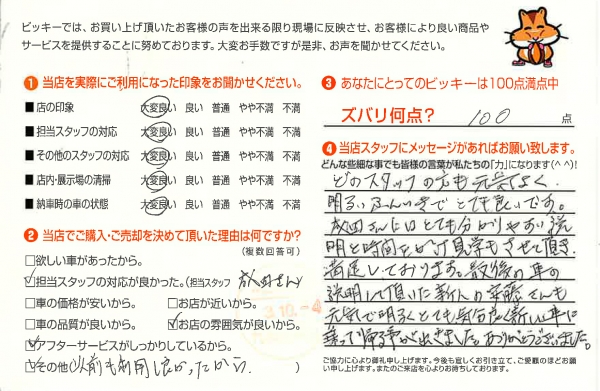 ビッキーでは、お買い上げ頂いたお客様の声を出来る限り現場に反映させ、お客様により良い商品や
サービスを提供することに努めております。大変お手数ですが是非、お声を聞かせてください。
1 当店を実際にご利用になった印象をお聞かせください。
■店の印象 大変良い 良い 普通 やや不満 不満
■担当スタッフの対応 大変良い 良い 普通 やや不満 不満
■その他のスタッフの対応 大変良い 良い 普通 やや不満 不満
■店内・展示場の清掃 大変良い 良い 普通 やや不満 不満
■納車時の車の状態 大変良い 良い 普通 やや不満 不満
2 当店でご購入・ご売却を決めて頂いた理由は何ですか?
(複数回答可)
□欲しい車があったから。
☑担当スタッフの対応が良かった。(担当スタッフ 成田さん)
□車の価格が安いから。 □お店が近いから。
□車の品質が良いから。 ☑お店の雰囲気が良いから。
☑アフターサービスがしっかりしているから。
☑その他(以前も利用し良かったから。)
3 10.-4
3 あなたにとってのビッキーは100点満点中
ズバリ何点? 100 点
4 当店スタッフにメッセージがあればお願い致します。
どんな些細な事でも皆様の言葉が私たちの「力」になります(^^)!
どのスタッフの方も元気よく
明るいふんいきでとても良いです。
成田さんにはとても分かりやすい説
明と時間をかけ見学もさせて頂き
満足しております。最後の車の
説明して頂いた新人の斉藤さんも
元気で明るくとても気分良く新しい車に
乗って帰る事が出来ました。ありがとうございました。
ご協力に心より御礼申し上げます。今後も宜しくお引き立て、ご愛顧のほどお願
い申し上げます。またのご来店を心よりお待ちしております。